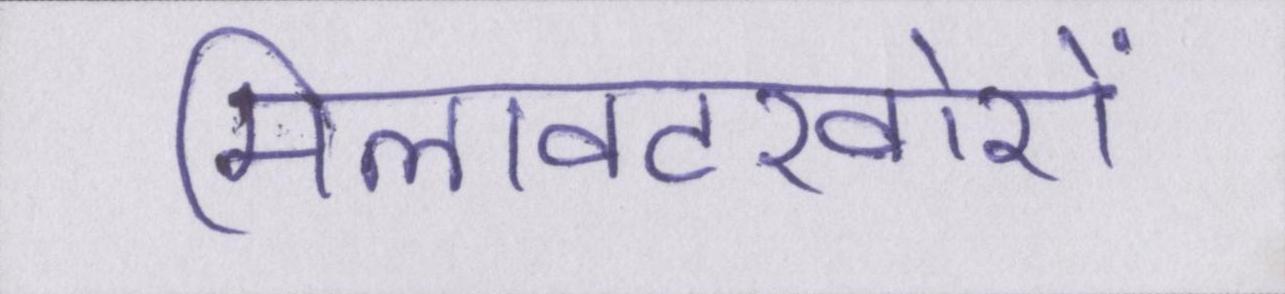 मिलावटखोरों